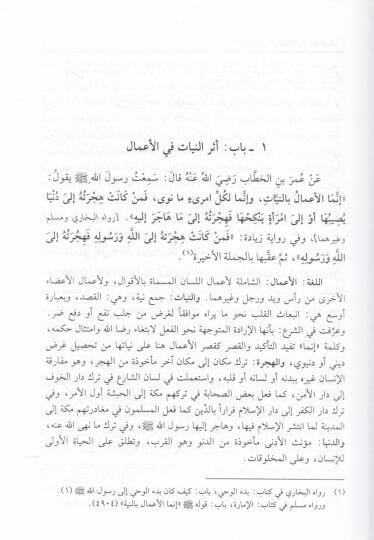 ١ - باب: أثر النيات في الأعمال
عَنْ عُمَرَ بنِ الخطَّاب رَضِيَ اللهُ عَنْهُ قالَ: سَمِعْتُ رسولَ اللهِ ﷺ يقولُ:
«إنَّمَا الأعمالُ بالنيَّاتِ، وإنَّما لكُلِّ امرىءٍ ما نوى، فَمنْ كَانَتْ هِجْرَتُهُ إلىٰ دُنْيَا
يُصِيبُهَا أوْ إلىٰ امْرَأةٍ يَنْكِحُهَا فَهِجْرَتُهُ إلىٰ مَا هَاجَرَ إليهِ». [رواه البخاري ومسلم
وغيرهما]، وفي رواية زيادة: «فَمنْ كَانَتْ هِجْرَتُهُ إلىٰ اللَّهِ وَرَسُولِهِ فَهِجْرَتُهُ إلىٰ
اللَّهِ وَرَسُولِهِ»، ثمَّ عقَّبها بالجملة الأخيرة(١).
اللغة: الأعمال: الشاملة لأعمال اللسان المسماة بالأقوال، ولأعمال الأعضاء
الأخرى من رأس ويد ورجل وغيرهما. والنيات: جمع نية، وهي: القصد، وبعبارة
أوسع هي: انبعاث القلب نحو ما يراه موافقاً لغرض من جلب نفع أو دفع ضر.
وعرّفت في الشرع: بأنها الإرادة المتوجهة نحو الفعل لابتغاء رضا الله وامتثال حكمه،
وكلمة «إنما» تفيد التأكيد والقصر كقصر الأعمال هنا على نياتها من تحصيل غرض
ديني أو دنيوي، والهجرة: ترك مكان إلى مكان آخر مأخوذة من الهجر، وهو مفارقة
الإنسان غيره ببدنه أو لسانه أو قلبه، واستعملت في لسان الشارع في ترك دار الخوف
إلى دار الأمن، كما فعل بعض الصحابة في تركهم مكة إلى الحبشة أول الأمر، وفي
ترك دار الكفر إلى دار الإسلام فراراً بالدِّين كما فعل المسلمون في مغادرتهم مكة إلى
المدينة لما انتشر الإسلام فيها، وهاجر إليها رسول الله ﷺ، وفي ترك ما نهى الله عنه،
والدنيا: مؤنث الأدنى مأخوذة من الدنو وهو القرب، وتطلق على الحياة الأولى
للإنسان، وعلى المخلوقات.
(١) رواه البخاري في كتاب: بدء الوحي، باب: كيف كان بدء الوحي إلى رسول الله ﷺ (١).
ورواه مسلم في كتاب: الإمارة، باب: قوله ﷺ «إنما الأعمال بالنية» (٤٩٠٤).